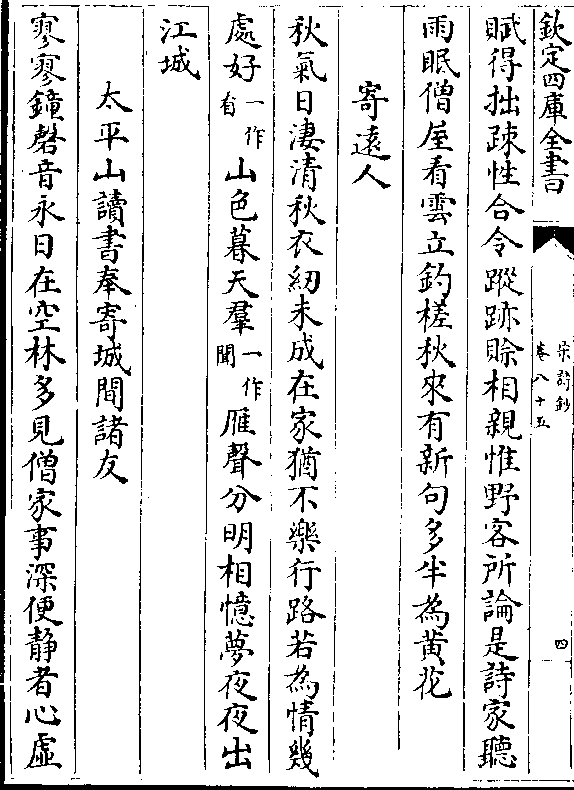 欽定四庫全書
宋詩鈔
卷八十五
四
賦得拙疎性合令蹤跡賒相親惟野客所論是詩家聽
雨眠僧屋看雲立釣槎秋來有新句多半為黄花
寄遠人
秋氣日淒清秋衣紉未成在家猶不樂行路若為情幾
處好一作看山色暮天羣一作聞雁聲分明相憶夢夜夜出
江城
太平山讀書奉寄城間諸友
寥寥鐘磬音永日在空林多見僧家事深便静者心虛